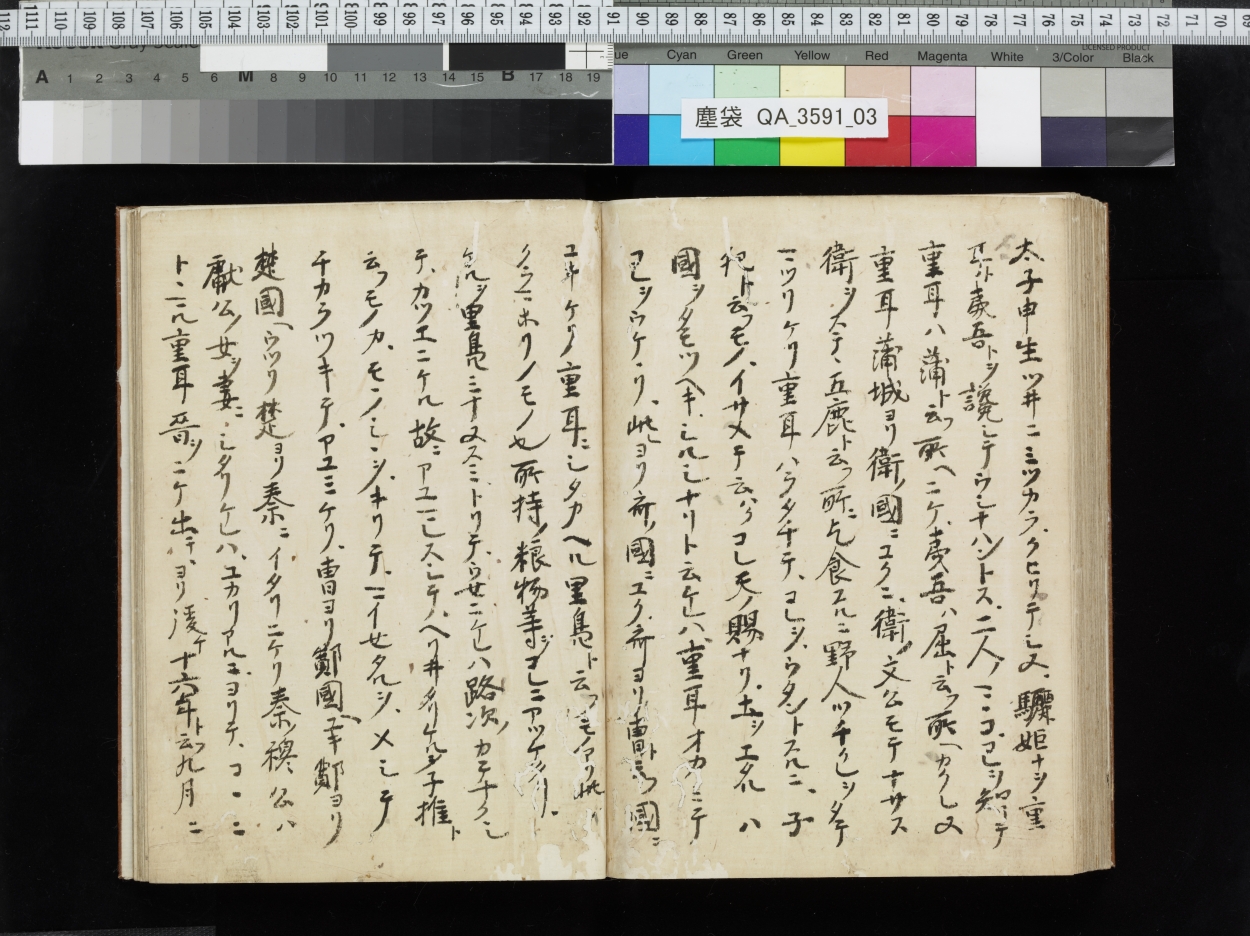 塵袋 QA_3591_03
太子申生ツ井ニミツカラクヒリテシヌ驪姫ナヲ重
耳ト夷吾トヲ讒シテウシナハントス二人ノミココレヲ知テ
重耳ハ蒲ト云フ所ヘニケ夷吾ハ屈ト云フ所ヘカクレヌ
重耳蒲城ヨリ衛ノ國ニユクニ衛ノ文公モテナサス
衛ヲステテ五鹿ト云フ所ニ乞食スルニ野人ツチクレヲタテ
マツリケリ重耳ハラタチテコレヲウタントスルニ子
犯ト云フモノイサメテ云ハクコレ天ノ賜ナリ土ヲエタルハ
國ヲタモツヘキシルシナリト云ケレハ重耳オカミテ
コレヲウケツ此ヨリ齊ノ國ニユク齊ヨリ曹ト云フ國ニ
ユキケリ重耳ニシタカヘル里鳧ト云フモノアリ此
クラマホリノモノ也所持ノ粮物等ヲコレニアツケタリ
ケルヲ里鳧ミナヌスミトリテウセニケレハ路次ノカテナクシ
テカツエニケル故ニアユマレスシテヘリ井タリケルヲ子推ト
云フモノカモノシシヲキリテマイセタルヲメシテ
チカラツキテアユミケリ曹ヨリ鄭國ヘユキ鄭ヨリ
楚國ヘウツリ楚ヨリ秦ニイタリニケリ秦ノ穆公ハ
獻公ノ女ヲ妻ニシタリケレハユカリアルニヨリテココニ
トマル重耳晉ヲニケ出テヨリ後チ十六年ト云フ九月ニ
Cyan
Green
Yellow
Red
Magenta
White
3/Color
Black
LICENSED PRODUCT
A 1 2 3 4 5 6 M 8 9 10 11 12 13 14 15 B 17 18 19